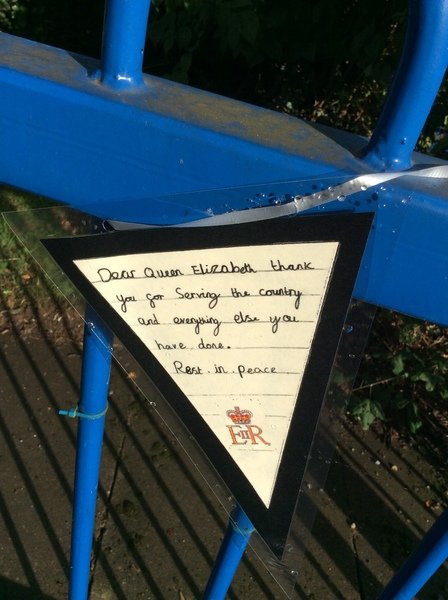 Dear Queen Elizabeth thank
you for Serving the country
and everything else you
have done.
Rest in peace
EIIR